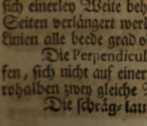 sich einerley Weite beh
Seiten verlängert werd
Linien alle beede grad o
Die Perpendicul
sen, sich nicht auf einer
rohalben zwey gleiche
Die schräg-lau